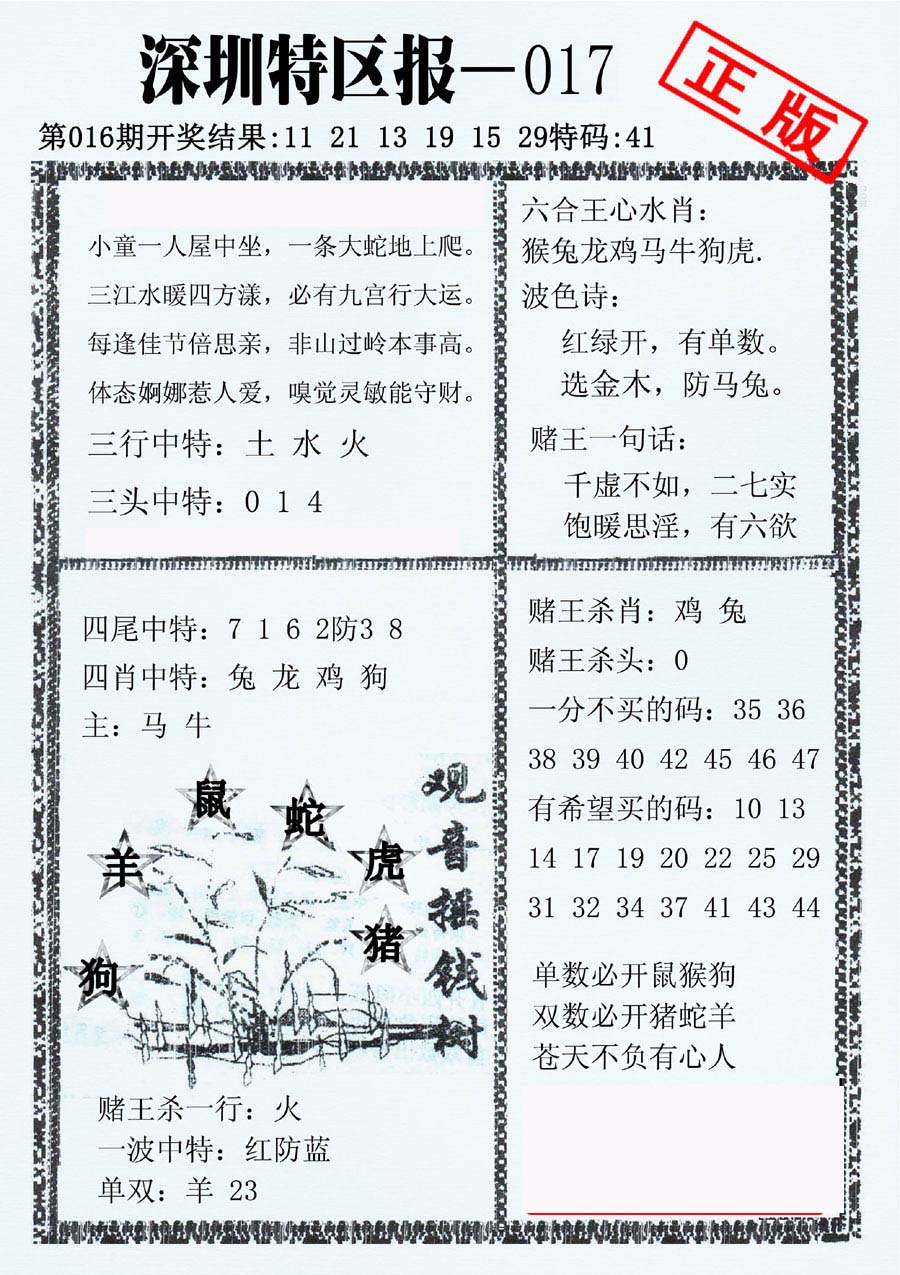 深圳特区报—017
正版
第016期开奖结果:11 21 13 19 15 29特码:41
小童一人屋中坐，一条大蛇地上爬。
三江水暖四方漾，必有九宫行大运。
每逢佳节倍思亲，非山过岭本事高。
体态婀娜惹人爱，嗅觉灵敏能守财。
三行中特：土 水 火
三头中特：0 1 4
六合王心水肖：
猴兔龙鸡马牛狗虎.
波色诗：
红绿开，有单数。
选金木，防马兔。
赌王一句话：
千虚不如，二七实
饱暖思淫，有六欲
四尾中特：7 1 6 2防3 8
四肖中特：兔 龙 鸡 狗
主：马 牛
鼠
蛇
羊
虎
猪
狗
观音摇钱树
赌王杀一行：火
一波中特：红防蓝
单双：羊 23
赌王杀肖：鸡 兔
赌王杀头：0
一分不买的码：35 36
38 39 40 42 45 46 47
有希望买的码：10 13
14 17 19 20 22 25 29
31 32 34 37 41 43 44
单数必开鼠猴狗
双数必开猪蛇羊
苍天不负有心人